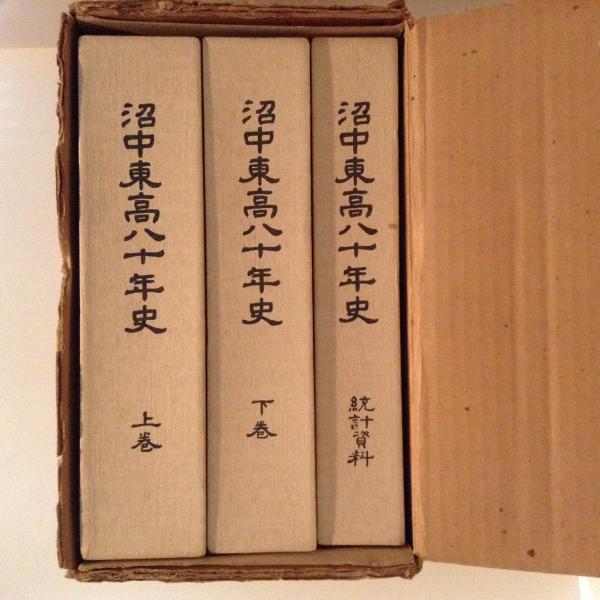 沼中東高八十年史
上巻
沼中東高八十年史
下巻
沼中東高八十年史
統計資料